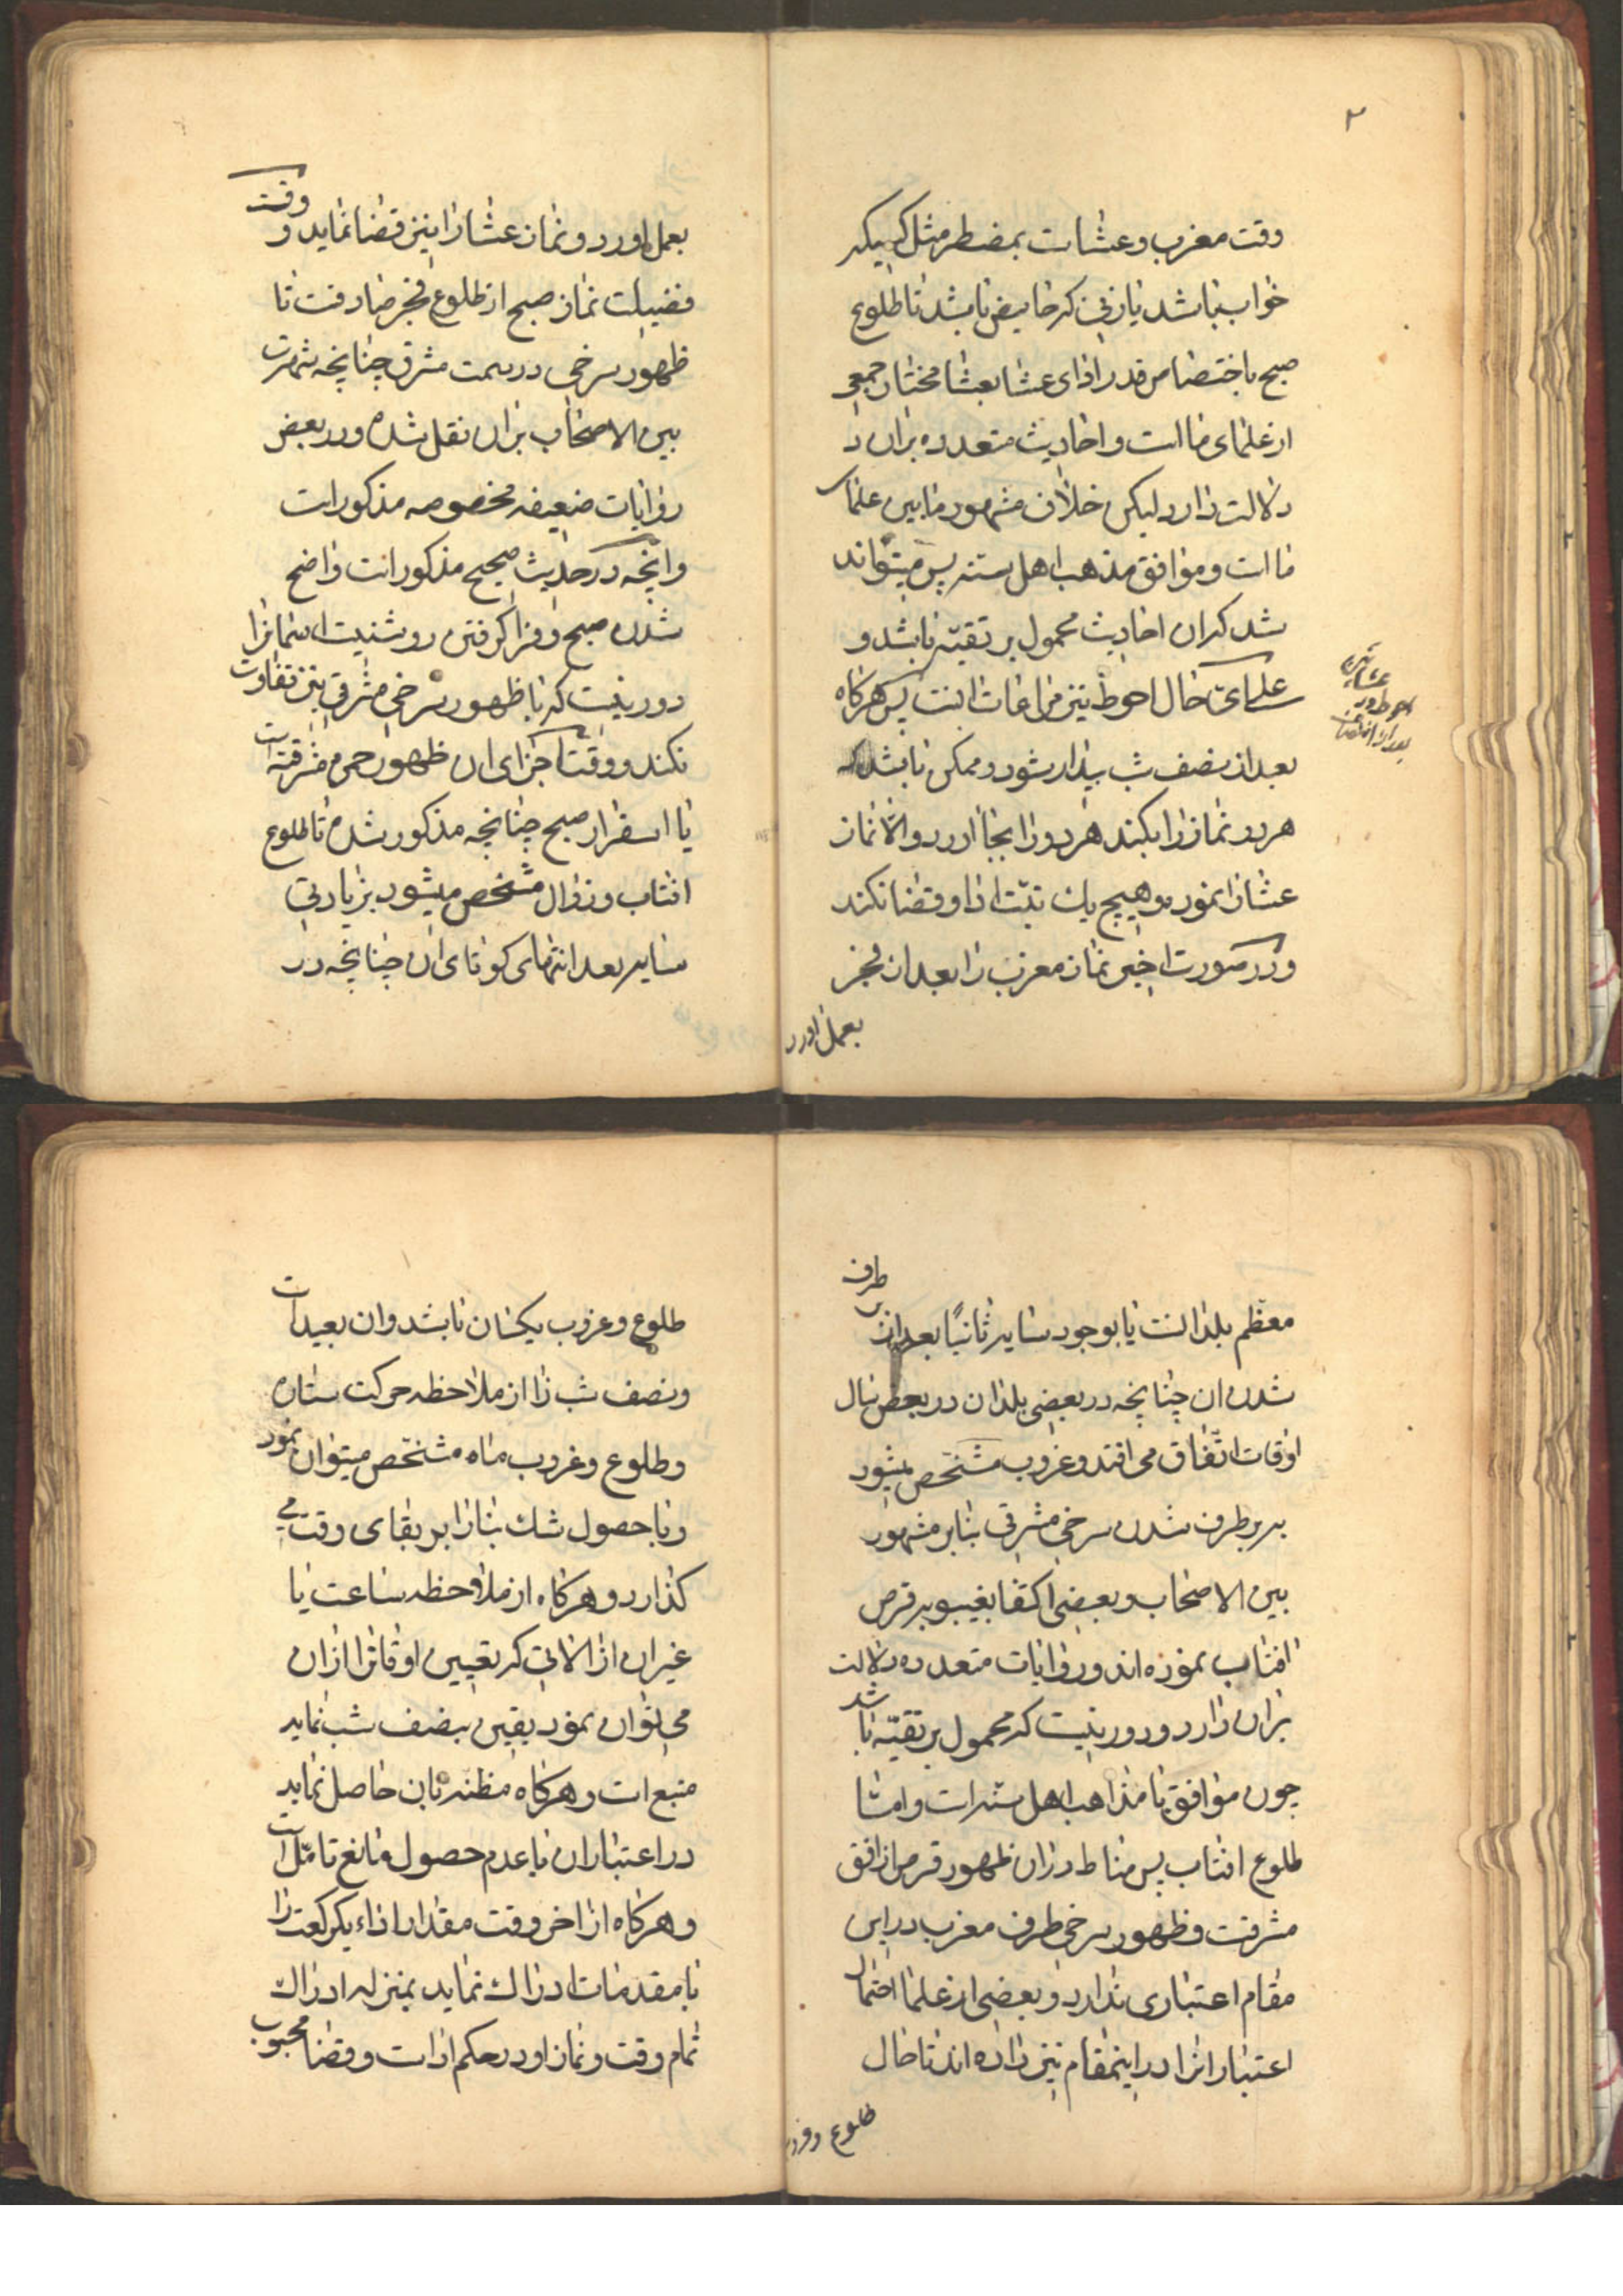 ۲
وقت مغرب و عشاست بمضطر مثل کسیکه
خواب باشد یا زنی که حایض باشد تا طلوع
صبح با اختصاص قدر ادای عشا بعشا مختار جمعی
از علمای ما است و احادیث متعدده بران د
دلالت دارد لیکن خلاف مشهور مابین علمای
ما است و موافق مذهب اهل سنه پس میتواند
شد که ان احادیث محمول بر تقیّه باشد و
علی ایّ حال احوط نیز مراعات انست پس هرکاه
بعد از نصف شب بیدار شود و ممکن باشد که
هر دو نماز را بکند هر دو را بجا اورد و الا نماز
عشا را نموده و هیچ یك نیّت ادا و قضا نکند
و در صورت اخیر نماز مغرب را بعد از فجر
بعمل اورد
بعمل اورد و نماز عشا را نیز قضا نماید و وقت
فضیلت نماز صبح از طلوع فجر صادقست تا
ظهور سرخی در سمت مشرق چنانچه شهرت
بین الاصحاب بران نقل شده و در بعض
روایات ضعیفه مخصوصه مذکور است
و انچه در حدیث صحیح مذکور است واضح
شدن صبح و فرا کرفتن روشنیست اسمانرا
دور نیست که با ظهور سرخی مشرقی نیز تفاوت
نکند و وقت اجزای ان ظهور حمره مشرقیّه است
یا اسفرار صبح چنانچه مذکور شده تا طلوع
افتاب و زوال مشخص میشود بزیادتی
سایه بعد انتهای کوتاهی ان چنانچه در
معظم بلدانست یا بوجود سایه ثانیًا بعد از بر طرف
شدن ان چنانچه در بعضی بلدان در بعض سال
اوقات اتّفاق می افتد و غروب مشخّص میشود
به بر طرف شدن سرخی مشرقی بنابر مشهور
بین الاصحاب و بعضی اکتفا بغیبوبه قرص
افتاب نموده اند و روایات متعدده دلالت
بران دارد و دور نیست که محمول بر تقیّه باشد
چون موافق با مذاهب اهل سنه است و امّا
طلوع افتاب پس مناط دران ظهور قرص از افق
مشرقست و ظهور سرخی طرف مغرب در این
مقام اعتباری ندارد و بعضی از علما احتمال
اعتبار انرا در اینمقام نیز داده اند تا حال
طلوع و غروب
طلوع و غروب یکسان باشد و ان بعید است
و نصف شب را از ملاحظه حرکت ستاره
و طلوع و غروب ماه مشخّص میتوان نمود
و با حصول شك بنا را بر بقای وقت می
کذارد و هرکاه از ملاحظه ساعت یا
غیر ان از الاتی که تعیین اوقاترا ازان
می توان نمود یقین بنصف شب نماید
متبع است و هرکاه مظنه بان حاصل نماید
در اعتبار ان با عدم حصول مانع تامّل است
و هرکاه از اخر وقت مقدار اداء یکرکعت را
با مقدمات ادراك نماید بمنزله ادراك
تمام وقت و نماز او در حکم اداست و قضا محبوب